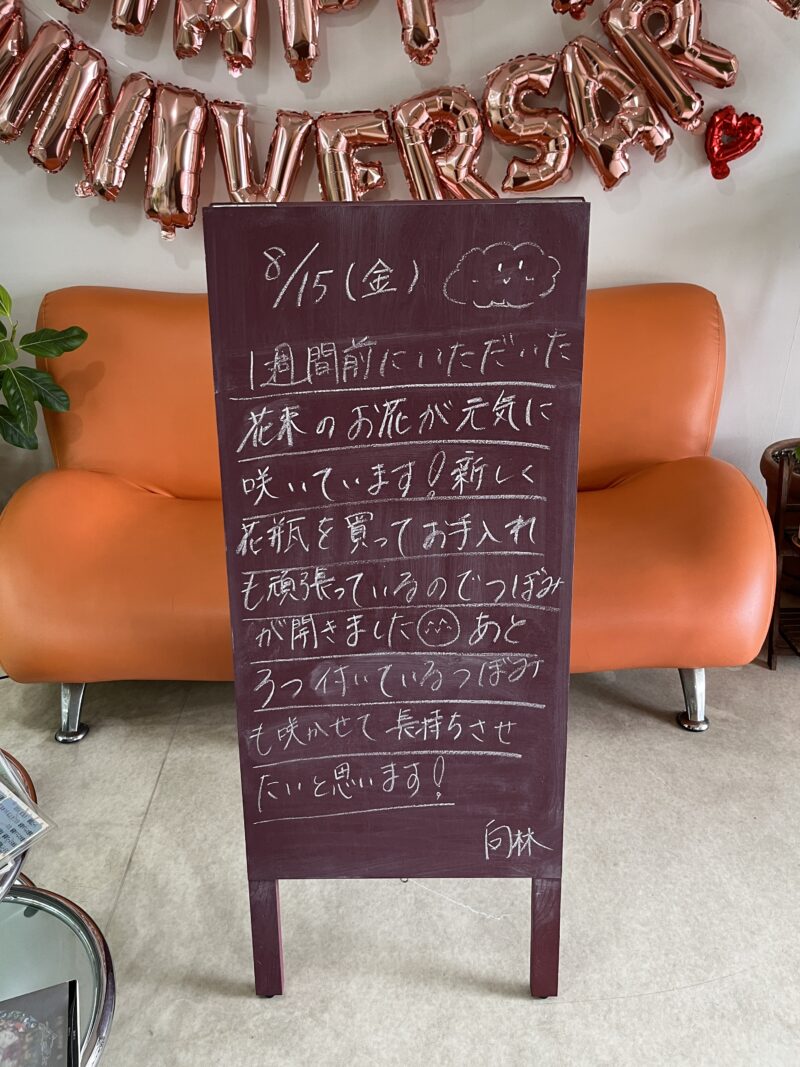 ANNIVERSAR
8/15(金)
1週間前にいただいた
花束のお花が元気に
咲いています!新しく
花瓶を買ってお手入れ
も頑張っているのでつぼみ
が開きました あと
3つ付いているつぼみ
も咲かせて長持ちさせ
たいと思います!
向林